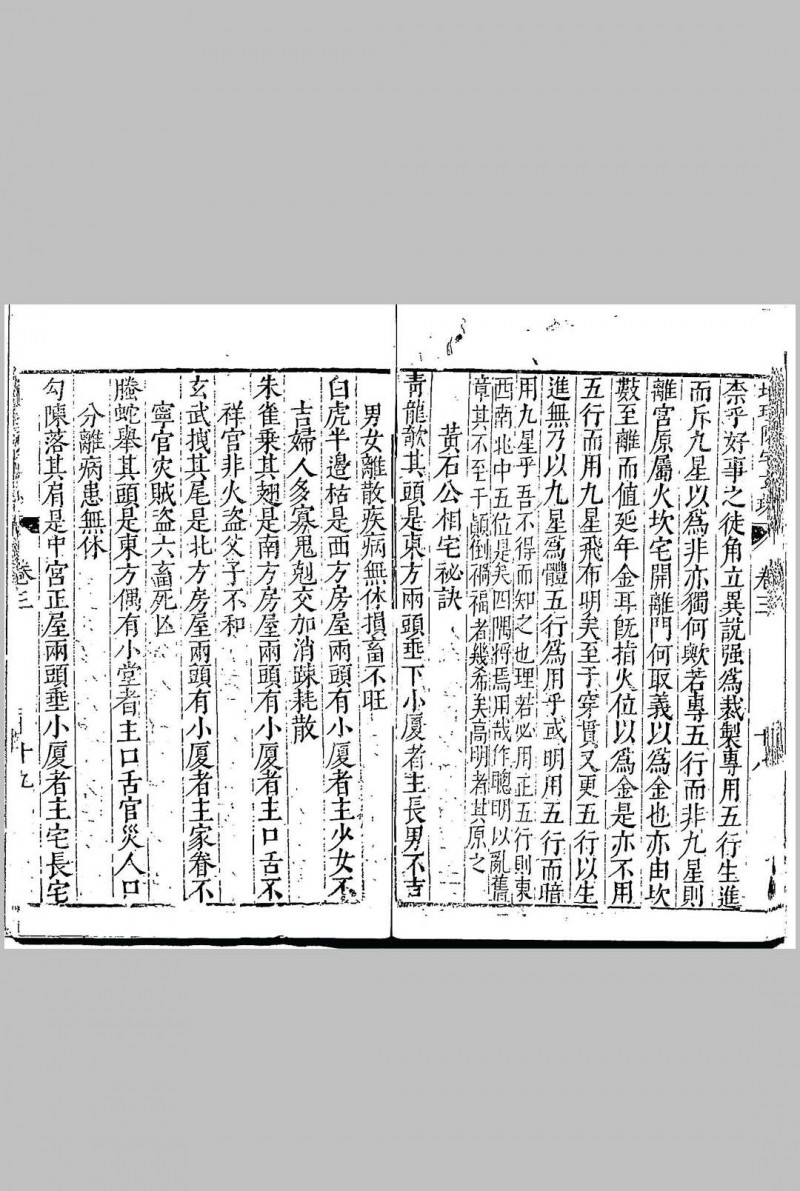 卷三
奈乎好事之徒角立異說强爲裁製專用五行生進
而斥九星以爲非亦獨何歟若專五行而非九星則
離宮原屬火坎宅開離門何取義以爲金也亦由坎
數至離而值延年金耳旣指火位以爲金是亦不用
五行而用九星飛布明矣至于穿貫又更五行以生
進無乃以九星爲體五行爲用乎或明用五行而暗
用九星乎吾不得而知之也理若必用正五行則東
西南北中五位是矣四隅將焉用哉作聰明以亂舊
章其不至于顛倒禍福者幾希矣高明者其原之
黃石公相宅祕訣
靑龍欹其頭是東方兩頭垂下小厦者主長男不吉
男女離散疾病無休損畜不旺
白虎半邊枯是西方房屋兩頭有小厦者主少女不
吉婦人多寡鬼剋交加消踈耗散
朱雀乘其翅是南方房屋兩頭有小厦者主口舌不
祥官非火盜父子不和
玄武拽其尾是北方房屋兩頭有小厦者主家眷不
寧官灾賊盜六畜死亾
螣蛇舉其頭是東方偶有小堂者主口舌官災人口
分離病患無休
勾陳落其肩是中宮正屋兩頭垂小厦者主宅長宅
卷三
十九